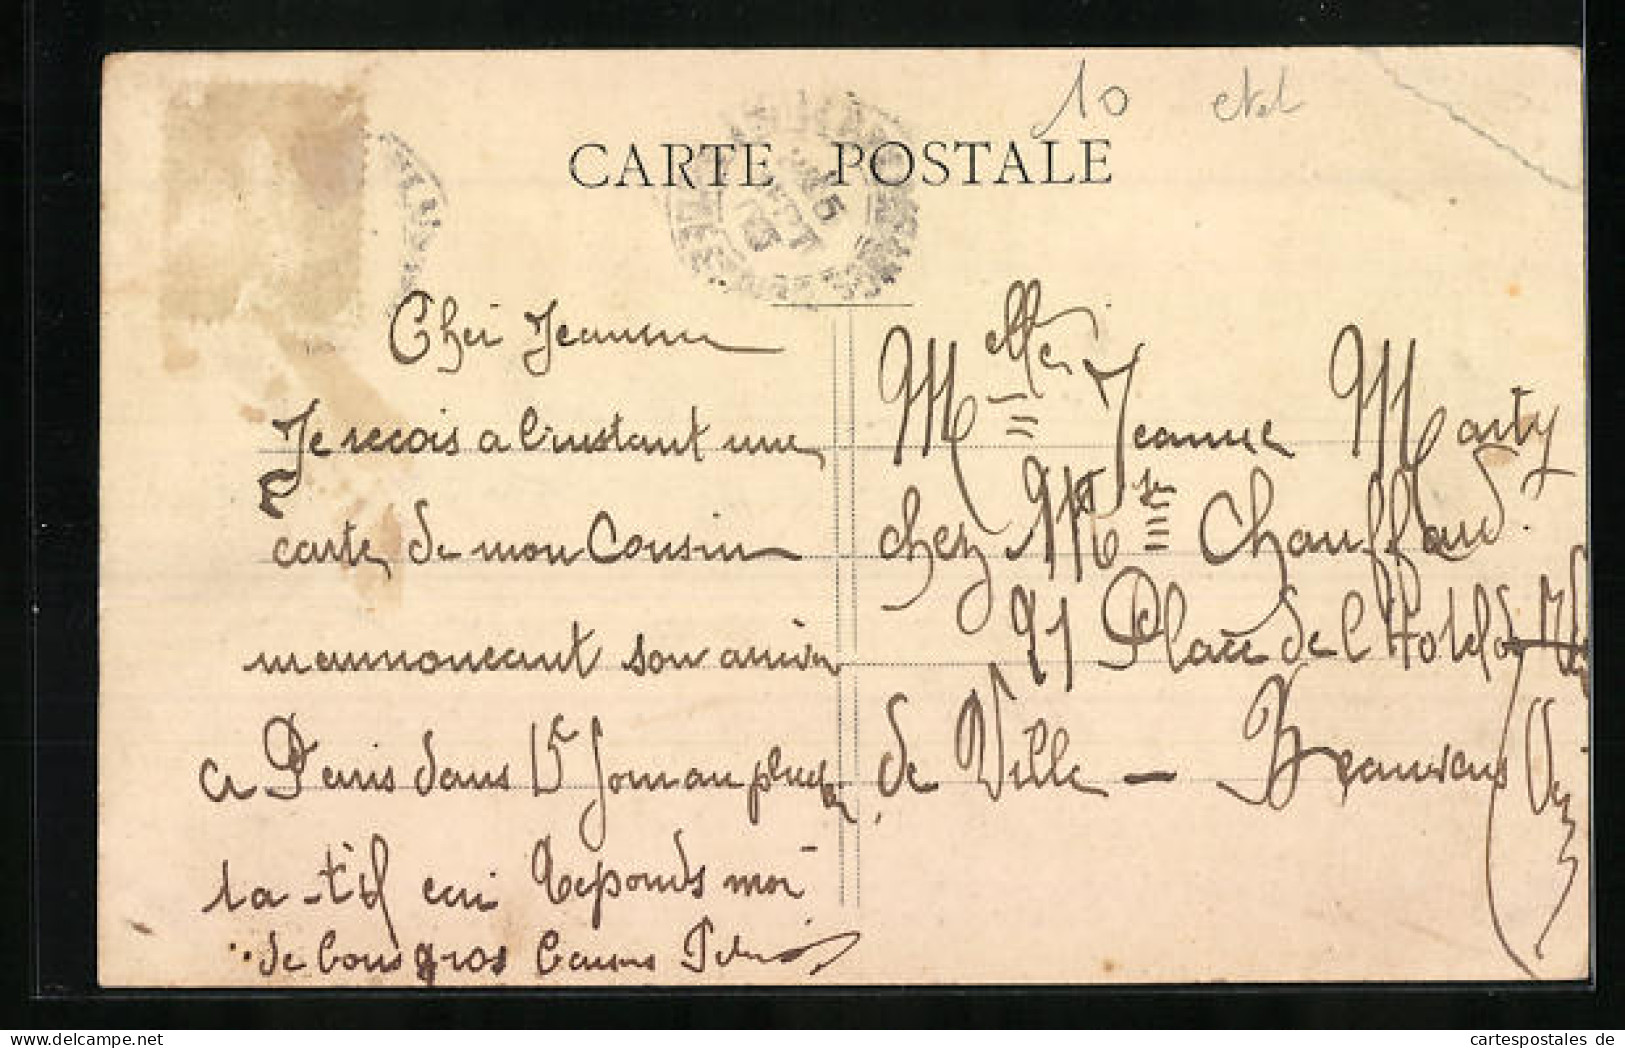 10
CARTE POSTALE
Cher Jeanne
Je recois a l'instant une
carte de mon Cousin
m'annoncant son arrivée
a Paris dans 15 Jour au plus
ta-t'il Reponds moi
de bons gros
Melle Jeanne Marty
chez Mme Chauffard.
91 Place de l'Hotel de
de Ville — Beauvais
(Oise)
cartespostales de